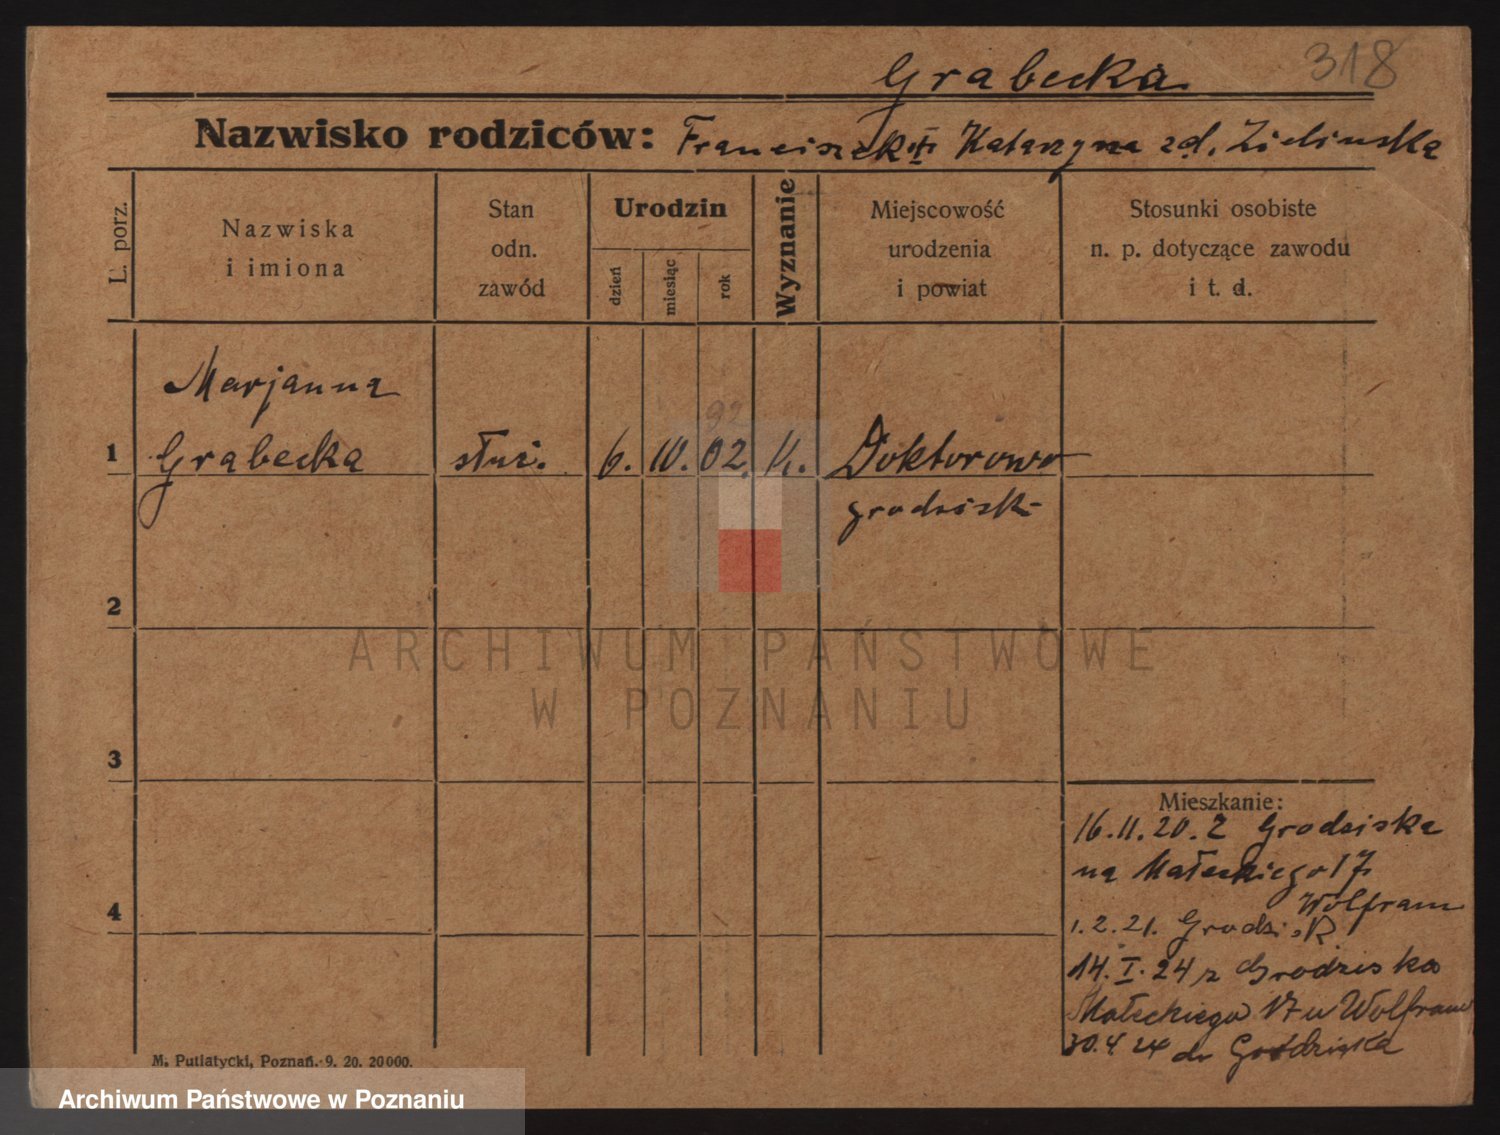 Grabecka
318
Nazwisko rodziców: Franciszek Katarzyna zd. Zielinska
L. porz.
Nazwiska
i imiona
Stan
odn.
zawód
Urodzin
dzień
miesiąc
rok
Wyznanie
Miejscowość
urodzenia
i powiat
Stosunki osobiste
n. p. dotyczące zawodu
i t. d.
Marjanna
92
1 Grabecka służ. 6. 10. 02. K. Doktorowo
grodzisk
2
ARCHIWUM PAŃSTWOWE
W POZNANIU
3
Mieszkanie:
16.11.20. z Grodziska
na Małeckiego 17
Wolfram
4
1.2.21. Grodzisk
14.I.24 z Grodziska
Małeckiego 17 u Wolfram
30.4.24 do Grodziska
M. Putiatycki, Poznań. 9. 20. 20 000.
Archiwum Państwowe w Poznaniu